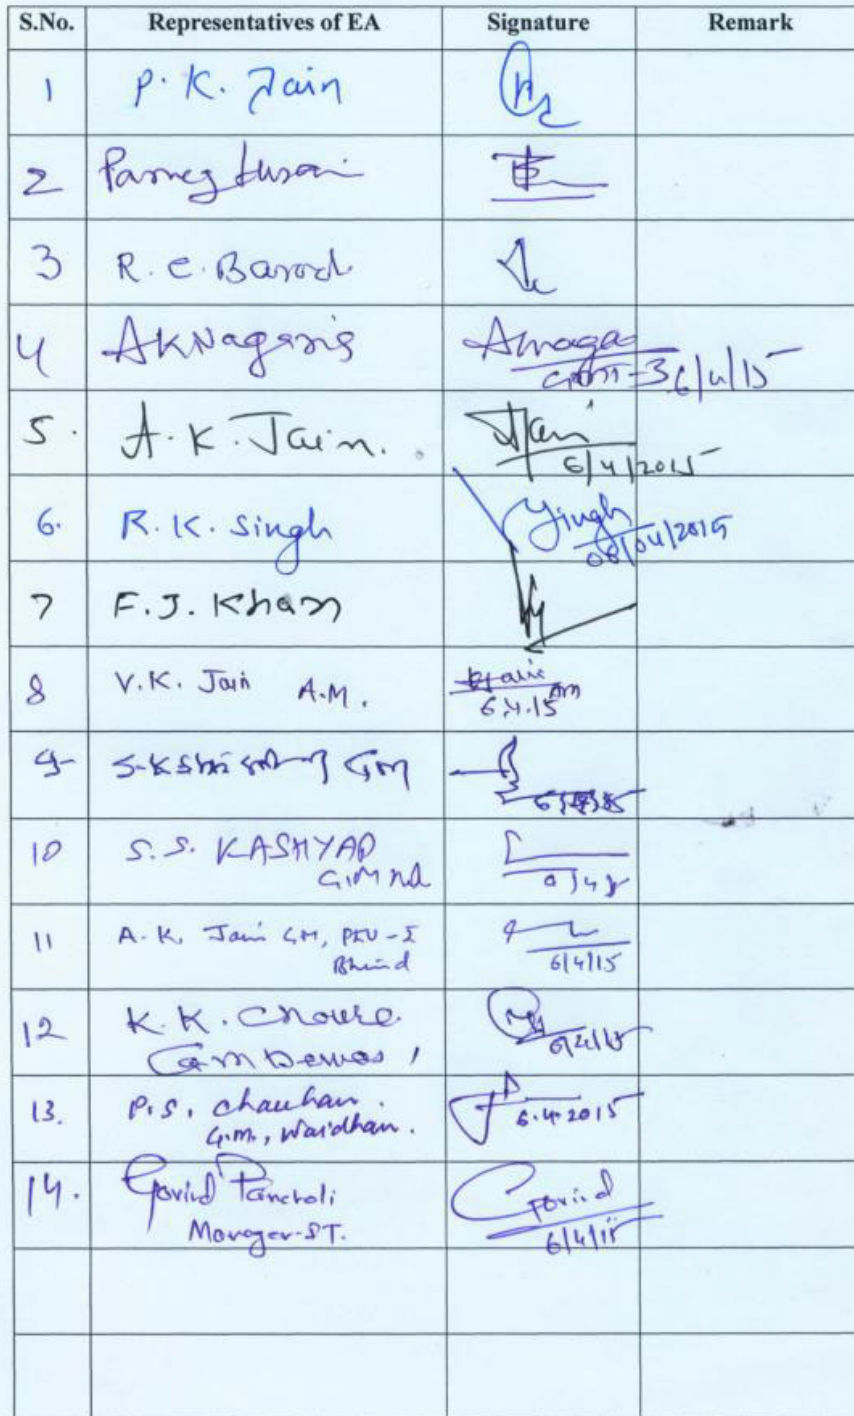 S.No. Representatives of EA Signature Remark
1 P. K. Jain
2
3 R. C. Barod
4 AKNagaria 6/4/15
5. A. K. Jain. Jain
6/4/2015
6. R. K. Singh Singh
08/04/2015
7 F. J. Khan
8 V.K. Jain A.M. AM
6.4.15
9 GM
10 S. S. KASHYAP
GM
11 A. K. Jain GM, PIU-I
Bhind 6/4/15
12 K. K. Choure
GM Dewas 6/4/15
13. P. S. Chauhan.
G.M., Waidhan. 6.4.2015
14. Govind Pancholi Govind
Manager-ST. 6/4/15